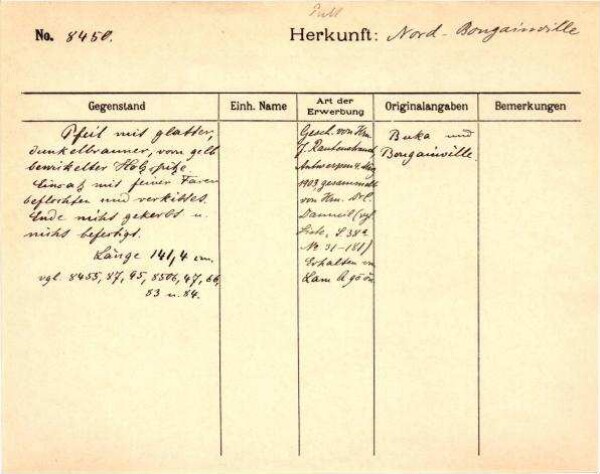 No. 8450.
Herkunft: Nord-Bougainville
Gegenstand
Einh. Name
Art der Erwerbung
Originalangaben
Bemerkungen
Pfeil mit glatter,
dunkelbrauner, vorn gelb
bewickelter Holzspitze.
Einsatz mit feiner Faser
beflochten und verkittet.
Ende nicht gekerbt u.
nicht befestigt.
Länge 141,4 cm.
vgl. 8455, 87, 95, 8506, 47, 66,
83 u. 84.
Gesch. von Hrn
J.
Antwerpen
1903, gesammelt
von Hrn. Dr.
(vgl.
Liste, S 38a
No 31-181)
Erhalten
Buka und
Bougainville.